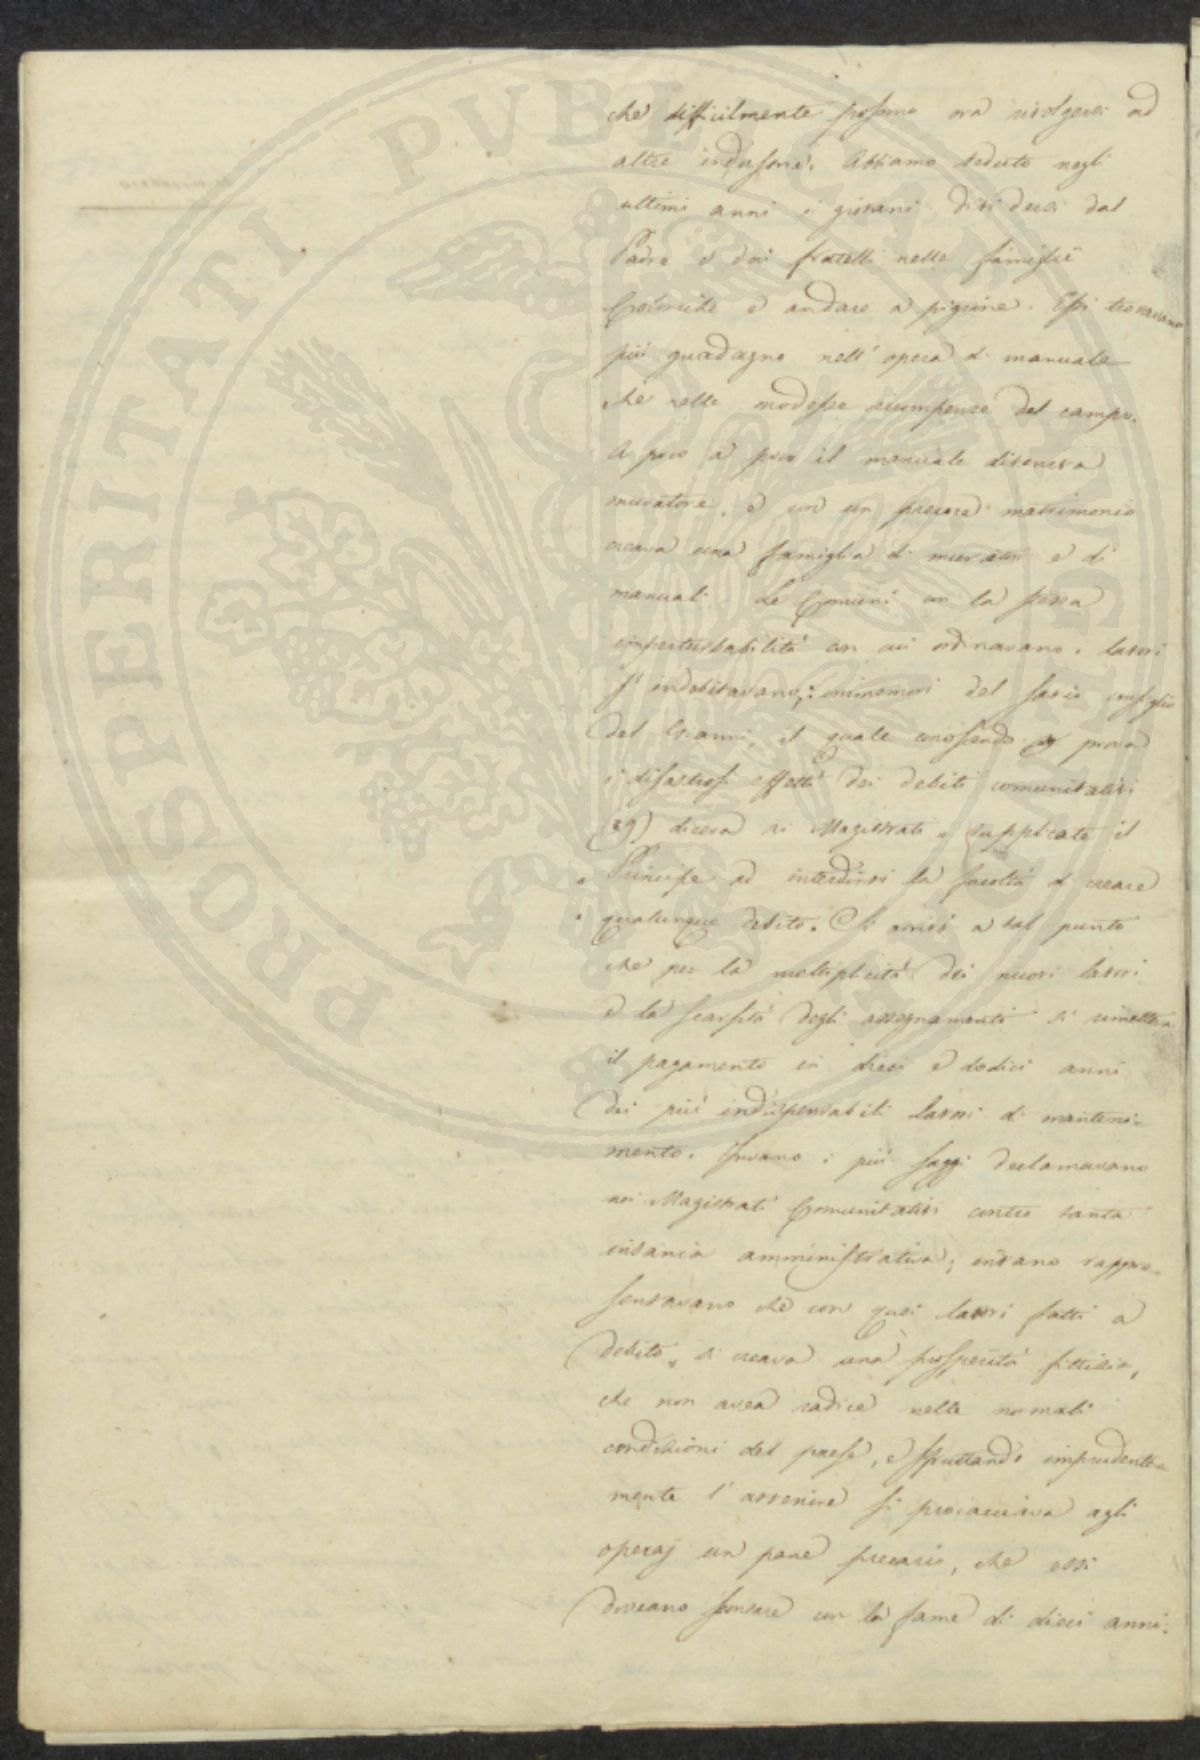 che difficilmente possono ora rivolgersi ad
altre industrie. Abbiamo veduto negli
ultimi anni i giovani dividersi dal
Padre e dai fratelli nelle famiglie
Coloniche e andare a pigione. Essi trovavano
più guadagno nell' opera di manuale
che nelle modeste ricompense del campo.
A poco a poco il manuale diveniva
muratore, e con un precoce matrimonio
creava una famiglia di muratori e di
manuali. Le Comuni con la stessa
imperturbabilità con cui ordinavano i lavori
s' indebitavano; immemori del savio consiglio
del Gianni, il quale conoscendo a prova
i disastrosi effetti dei debiti comunitativi
(39) diceva ai Magistrati „ supplicate il
„ Principe ad interdirvi la facoltà di creare
„ qualunque debito. Si arrivò a tal punto
che per la molteplicità dei nuovi lavori
e la scarsità degli assegnamenti si rimetteva
il pagamento in dieci e dodici anni
dei più indispensabili lavori di manteni-
mento. Invano i più saggi declamavano
nei Magistrati Comunitativi contro tanta
insania amministrativa; invano rappre-
sentavano che con quei lavori fatti a
debito, si creava una prosperità fittizia,
che non avea radice nelle normali
condizioni del paese, e sfruttando imprudente-
mente l' avvenire si procacciava agli
operaj un pane precario, che essi
dovevano scontare con la fame di dieci anni.
PROSPERITATI PVBLICAE AVGENDAE